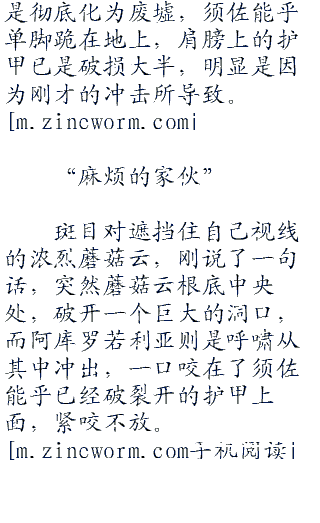 是彻底化为废墟，须佐能乎
单脚跪在地上，肩膀上的护
甲已是破损大半，明显是因
为刚才的冲击所导致。
[m.zincworm.com|
“麻烦的家伙”
斑目对遮挡住自己视线
的浓烈蘑菇云，刚说了一句
话，突然蘑菇云根底中央
处，破开一个巨大的洞口，
而阿库罗若利亚则是呼啸从
其中冲出，一口咬在了须佐
能乎已经破裂开的护甲上
面，紧咬不放。
[m.zincworm.com手机阅读|